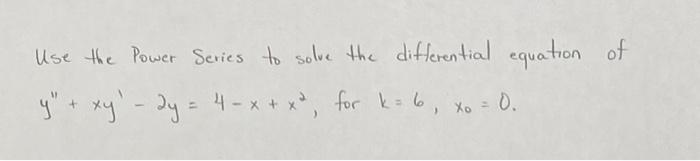 Use the Power Series to solve the differential equation of
y" + xy' - 2y = 4 - x + x², for k = 6, x₀ = 0.